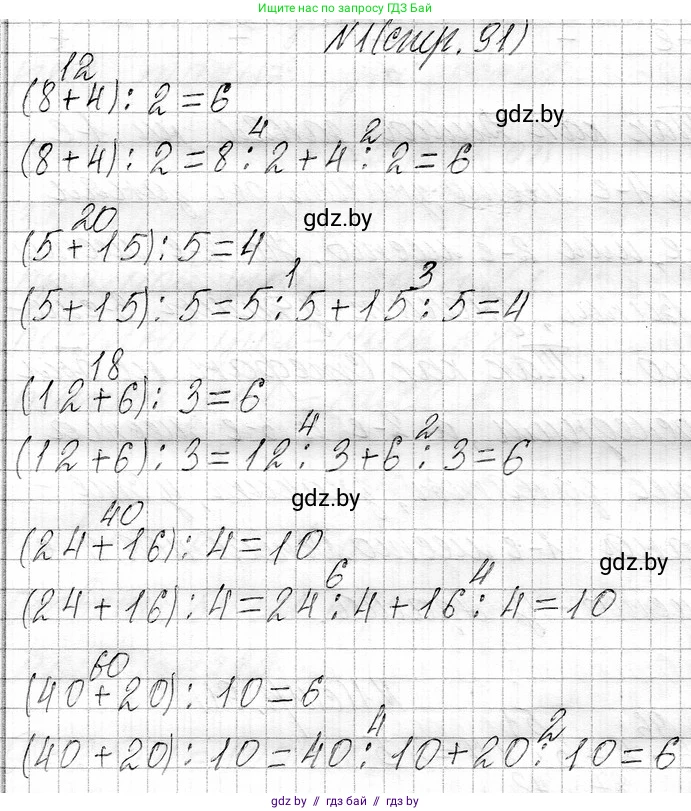 Ищите нас по запросу ГДЗ Бай
N1(стр. 91)
12
(8+4) : 2 = 6
gdz.by
4 2
(8+4) : 2 = 8 : 2 + 4 : 2 = 6
20
gdz.by
(5+15) : 5 = 4
1 3
(5+15) : 5 = 5 : 5 + 15 : 5 = 4
18
(12+6) : 3 = 6
4 2
(12+6) : 3 = 12 : 3 + 6 : 3 = 6
gdz.by
40
(24+16) : 4 = 10
gdz.by
6 4
(24+16) : 4 = 24 : 4 + 16 : 4 = 10
60
(40+20) : 10 = 6
4 2
(40+20) : 10 = 40 : 10 + 20 : 10 = 6
gdz.by // гдз бай // gdz by